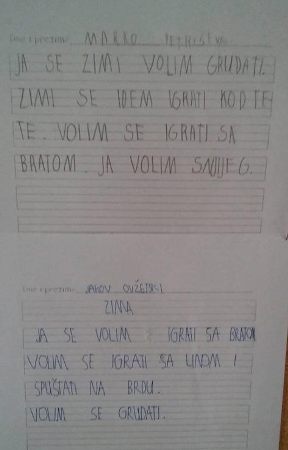 Ime i prezime: MARKO
JA SE ZIMI VOLIM GRUDATI.
ZIMI SE IDEM IGRATI KOD TE
TE. VOLIM SE IGRATI SA
BRATOM. JA VOLIM SNIJEG.
Ime i prezime: JAKOV
ZIMA
JA SE VOLIM IGRATI SA BRATOM
VOLIM SE IGRATI SA LINOM I
SPUŠTATI NA BRDU.
VOLIM SE GRUDATI.